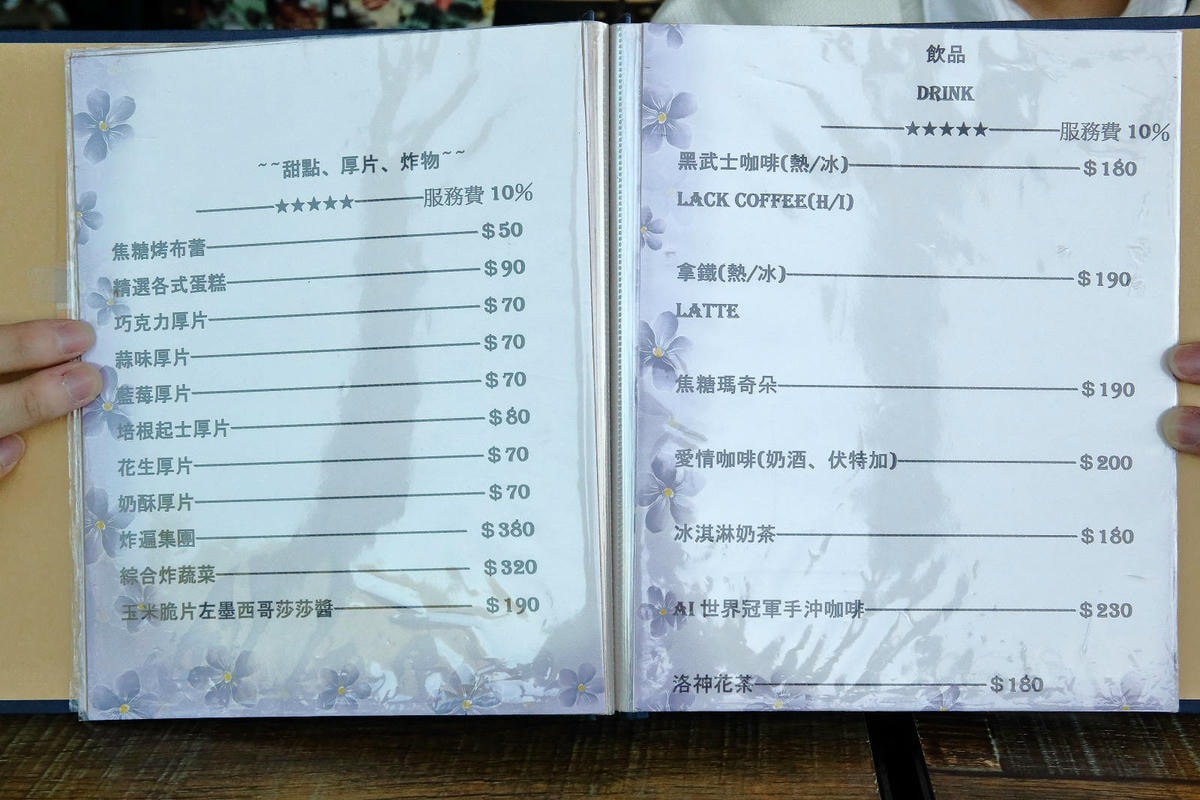 ~~甜點、厚片、炸物~~
★★★★★服務費 10%
焦糖烤布蕾 $50
精選各式蛋糕 $90
巧克力厚片 $70
蒜味厚片 $70
藍莓厚片 $70
培根起士厚片 $80
花生厚片 $70
奶酥厚片 $70
炸遍集團 $380
綜合炸蔬菜 $320
玉米脆片左墨西哥莎莎醬 $190
飲品
DRINK
★★★★★服務費 10%
黑武士咖啡(熱/冰) $180
LACK COFFEE(H/I)
拿鐵(熱/冰) $190
LATTE
焦糖瑪奇朵 $190
愛情咖啡(奶酒、伏特加) $200
冰淇淋奶茶 $180
AI 世界冠軍手沖咖啡 $230
洛神花茶 $180